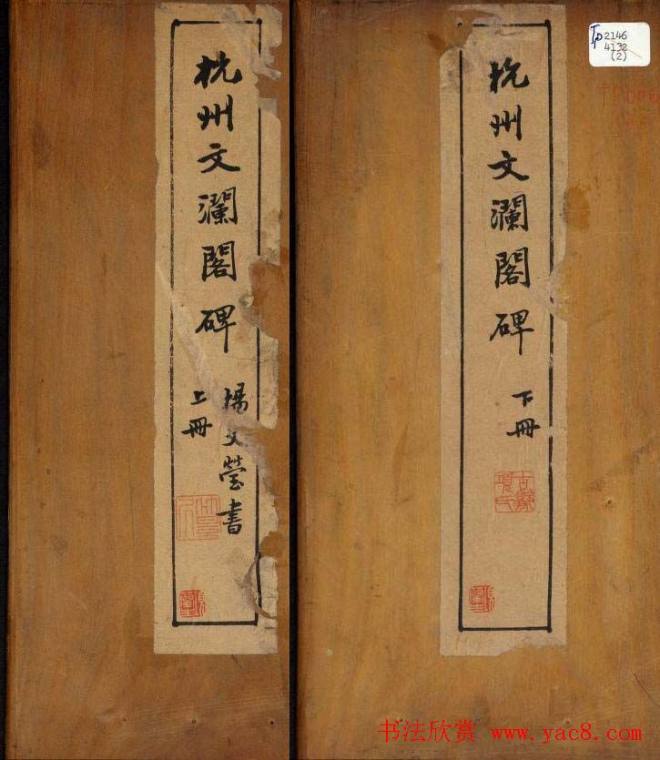 杭州文瀾閣碑
上冊
楊文瑩書
杭州文瀾閣碑
下冊
2146
4132
(2)
书法欣赏 www.yac8.com